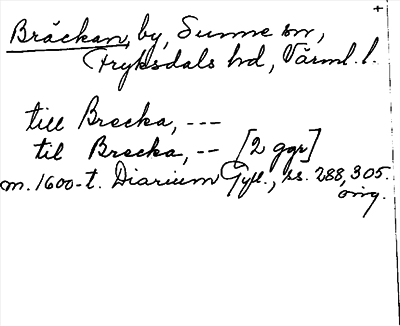 +
Bräckan, by, Sunne sn,
Fryksdals hd, Värml. l.
till Brecka, ---
til Brecka, -- [2 ggr]
m. 1600-t. Diarium Gyll., ss. 288, 305.
orig.